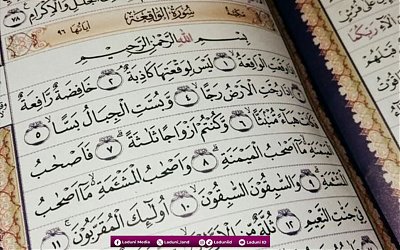 الْجَلَٰلِ وَالْإِكْرَامِ ٧٨
مكية سُورَةُ الوَاقِعَةِ آياتها ٩٦
بِسْمِ اللَّهِ الرَّحْمَٰنِ الرَّحِيمِ
إِذَا وَقَعَتِ الْوَاقِعَةُ ١ لَيْسَ لِوَقْعَتِهَا كَاذِبَةٌ ٢ خَافِضَةٌ رَافِعَةٌ
٣ إِذَا رُجَّتِ الْأَرْضُ رَجًّا ٤ وَبُسَّتِ الْجِبَالُ بَسًّا ٥
فَكَانَتْ هَبَاءً مُنْبَثًّا ٦ وَكُنْتُمْ أَزْوَاجًا ثَلَٰثَةً ٧ فَأَصْحَٰبُ
الْمَيْمَنَةِ مَا أَصْحَٰبُ الْمَيْمَنَةِ ٨ وَأَصْحَٰبُ الْمَشْـَٔمَةِ مَا أَصْحَٰبُ
الْمَشْـَٔمَةِ ٩ وَالسَّٰبِقُونَ السَّٰبِقُونَ ١٠ أُولَٰئِكَ الْمُقَرَّبُونَ ١١
فِي جَنَّٰتِ النَّعِيمِ ١٢ ثُلَّةٌ مِنَ
Laduni Media Laduni_land Laduniid Laduni ID